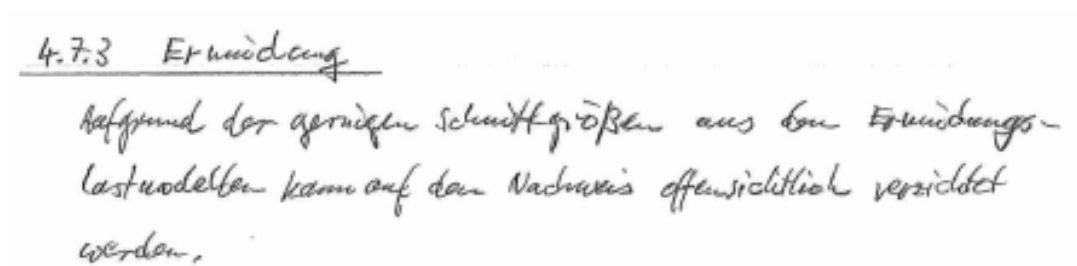 4.7.3 Ermüdung
Aufgrund der geringen Schnittgrößen aus den Ermüdungs-
lastmodellen kann auf den Nachweis offensichtlich verzichtet
werden.